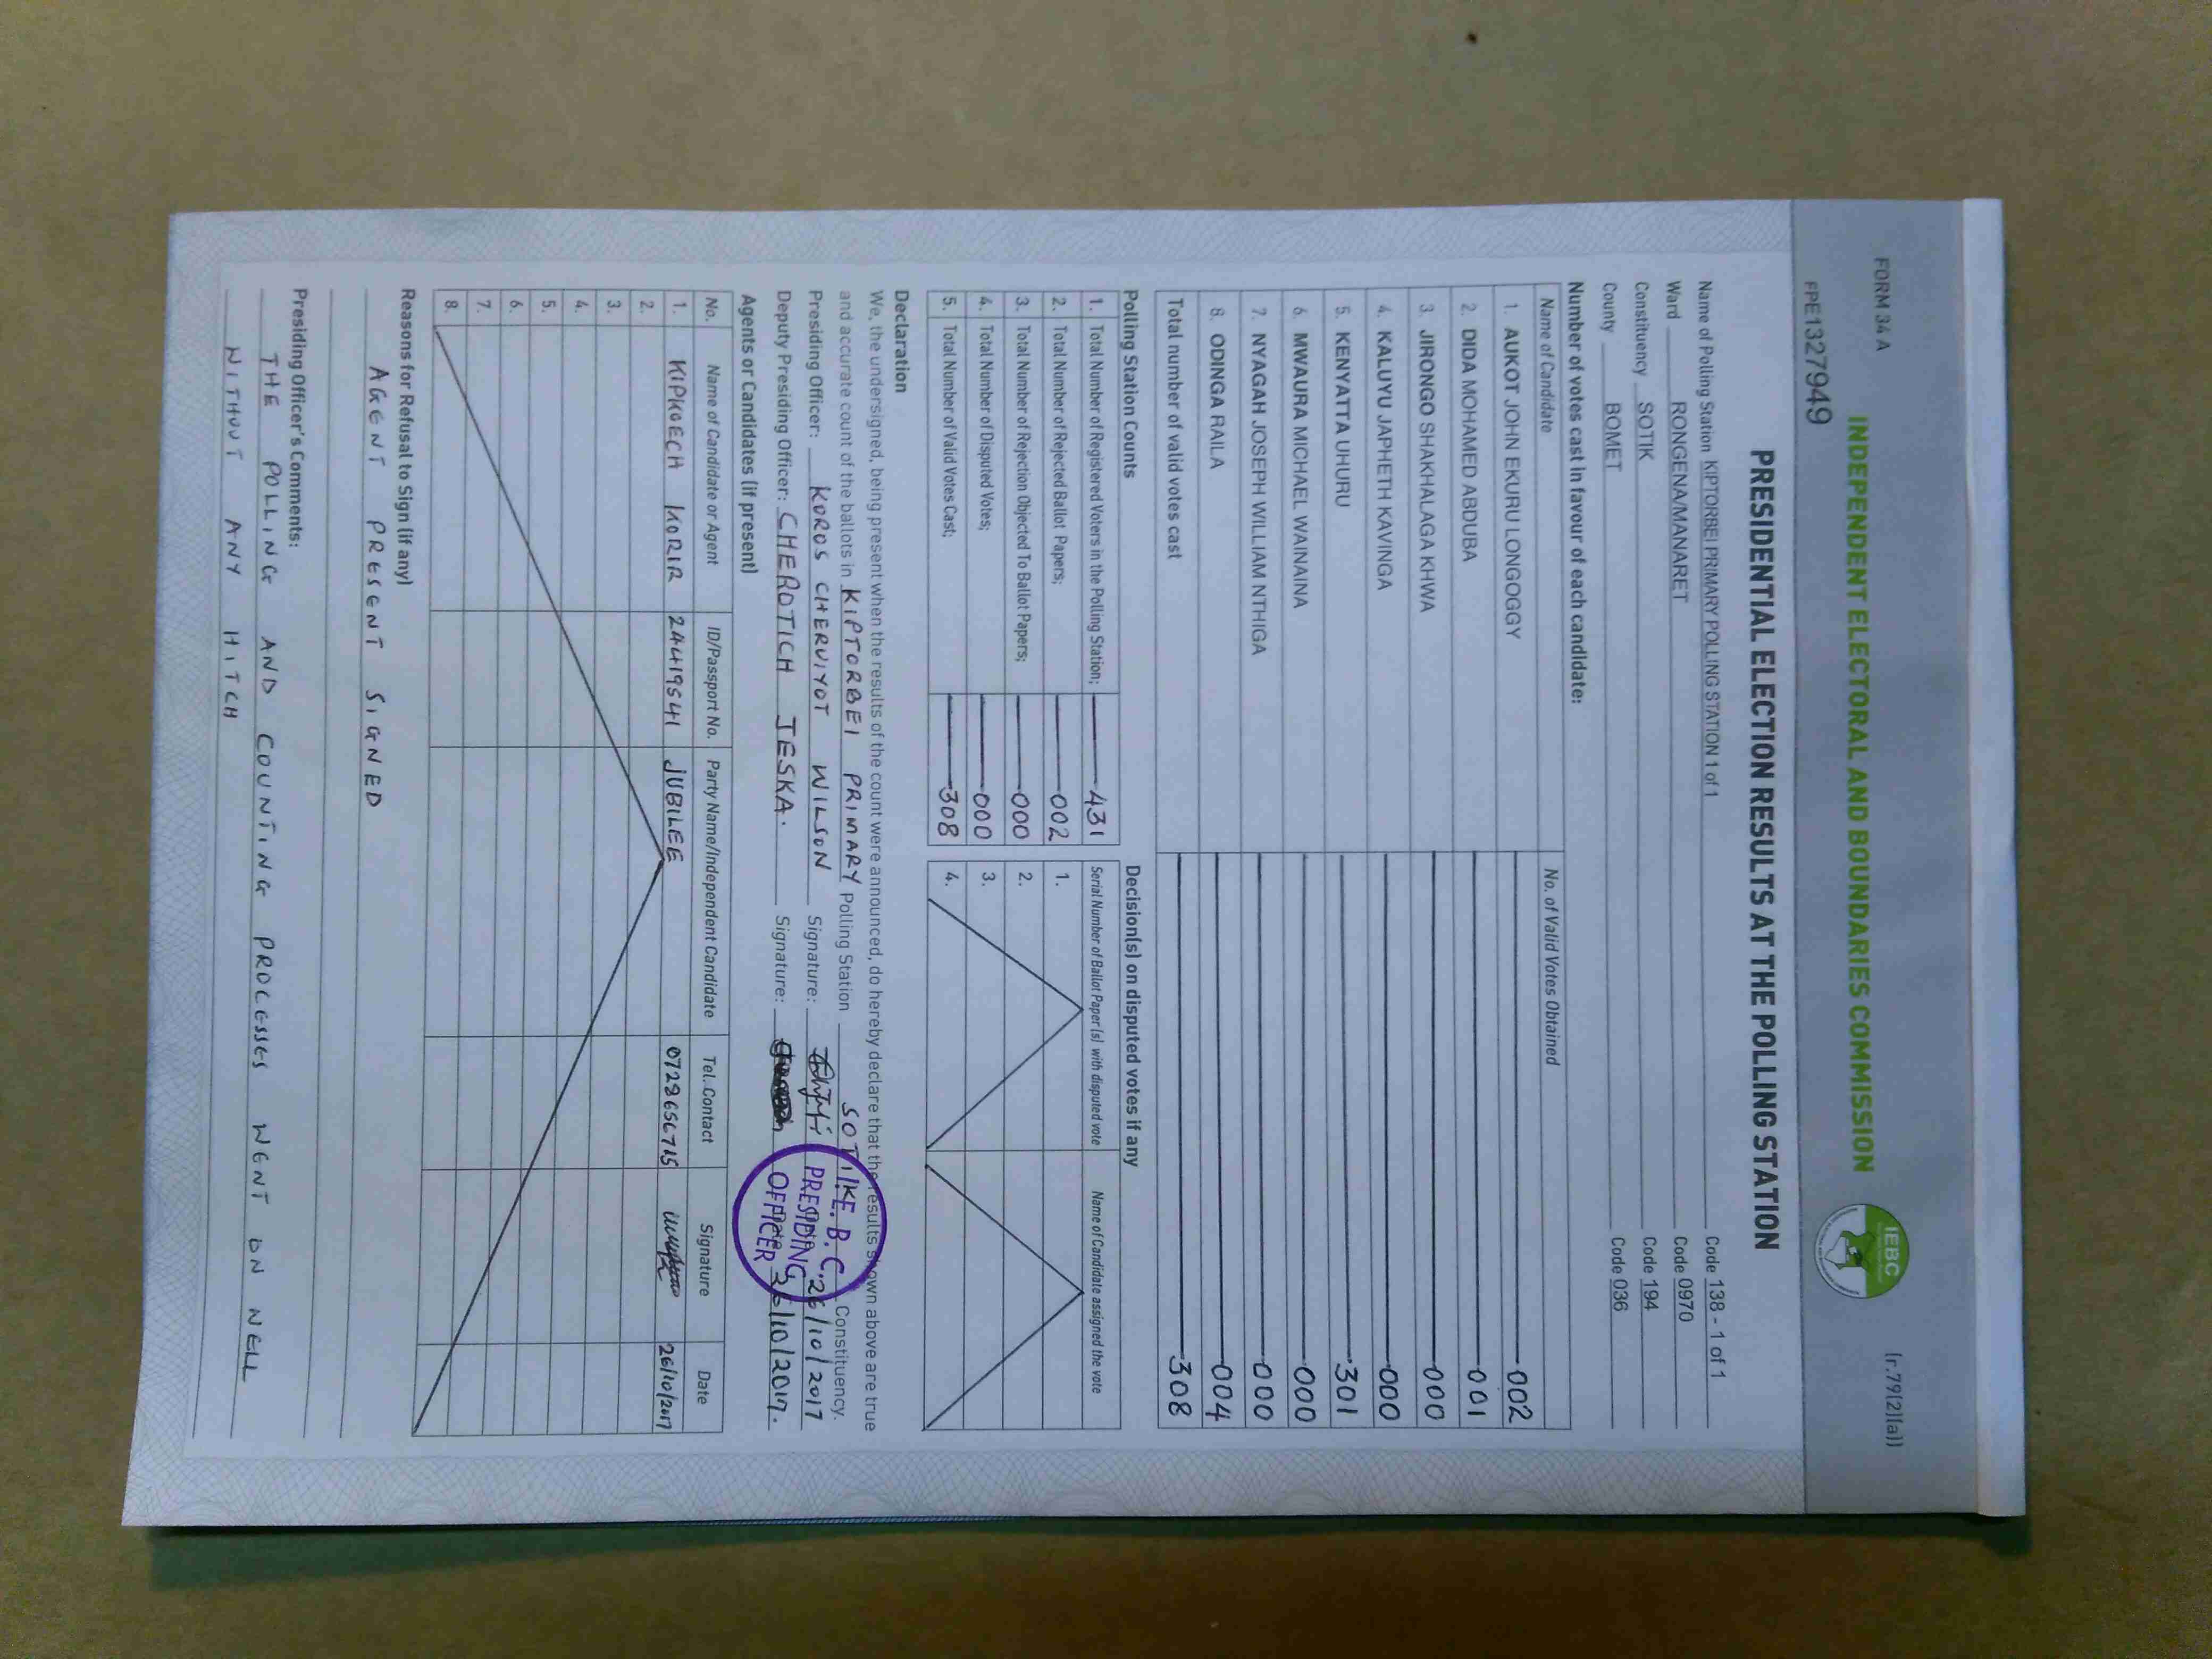 FORM 34 A
(r.79(2)(a))
INDEPENDENT ELECTORAL AND BOUNDARIES COMMISSION
IEBC
FPE1327949
PRESIDENTIAL ELECTION RESULTS AT THE POLLING STATION
Name of Polling Station KIPTORBEI PRIMARY POLLING STATION 1 of 1 Code 138 - 1 of 1
Ward RONGENA/MANARET Code 0970
Constituency SOTIK Code 194
County BOMET Code 036
Number of votes cast in favour of each candidate:
Name of Candidate No. of Valid Votes Obtained
1. AUKOT JOHN EKURU LONGOGGY 002
2. DIDA MOHAMED ABDUBA 001
3. JIRONGO SHAKHALAGA KHWA 000
4. KALUYU JAPHETH KAVINGA 000
5. KENYATTA UHURU 301
6. MWAURA MICHAEL WAINAINA 000
7. NYAGAH JOSEPH WILLIAM NTHIGA 000
8. ODINGA RAILA 004
Total number of valid votes cast 308
Polling Station Counts
1. Total Number of Registered Voters in the Polling Station; 431
2. Total Number of Rejected Ballot Papers; 002
3. Total Number of Rejection Objected To Ballot Papers; 000
4. Total Number of Disputed Votes; 000
5. Total Number of Valid Votes Cast; 308
Decision(s) on disputed votes if any
Serial Number of Ballot Paper(s) with disputed vote Name of Candidate assigned the vote
1.
2.
3.
4.
Declaration
We, the undersigned, being present when the results of the count were announced, do hereby declare that the results shown above are true
and accurate count of the ballots in KIPTORBEI PRIMARY Polling Station SOTIK Constituency.
Presiding Officer: KOROS CHERUIYOT WILSON Signature: 26/10/2017
Deputy Presiding Officer: CHEROTICH JESKA. Signature: Date: 26/10/2017.
I.E.B.C.
PRESIDING
OFFICER
Agents or Candidates (if present)
No. Name of Candidate or Agent ID/Passport No. Party Name/Independent Candidate Tel. Contact Signature Date
1. KIPKOECH KORIR 24419541 JUBILEE 0728656715 26/10/2017
2.
3.
4.
5.
6.
7.
8.
Reasons for Refusal to Sign (if any)
AGENT PRESENT SIGNED
Presiding Officer's Comments:
THE POLLING AND COUNTING PROCESSES WENT ON WELL
WITHOUT ANY HITCH